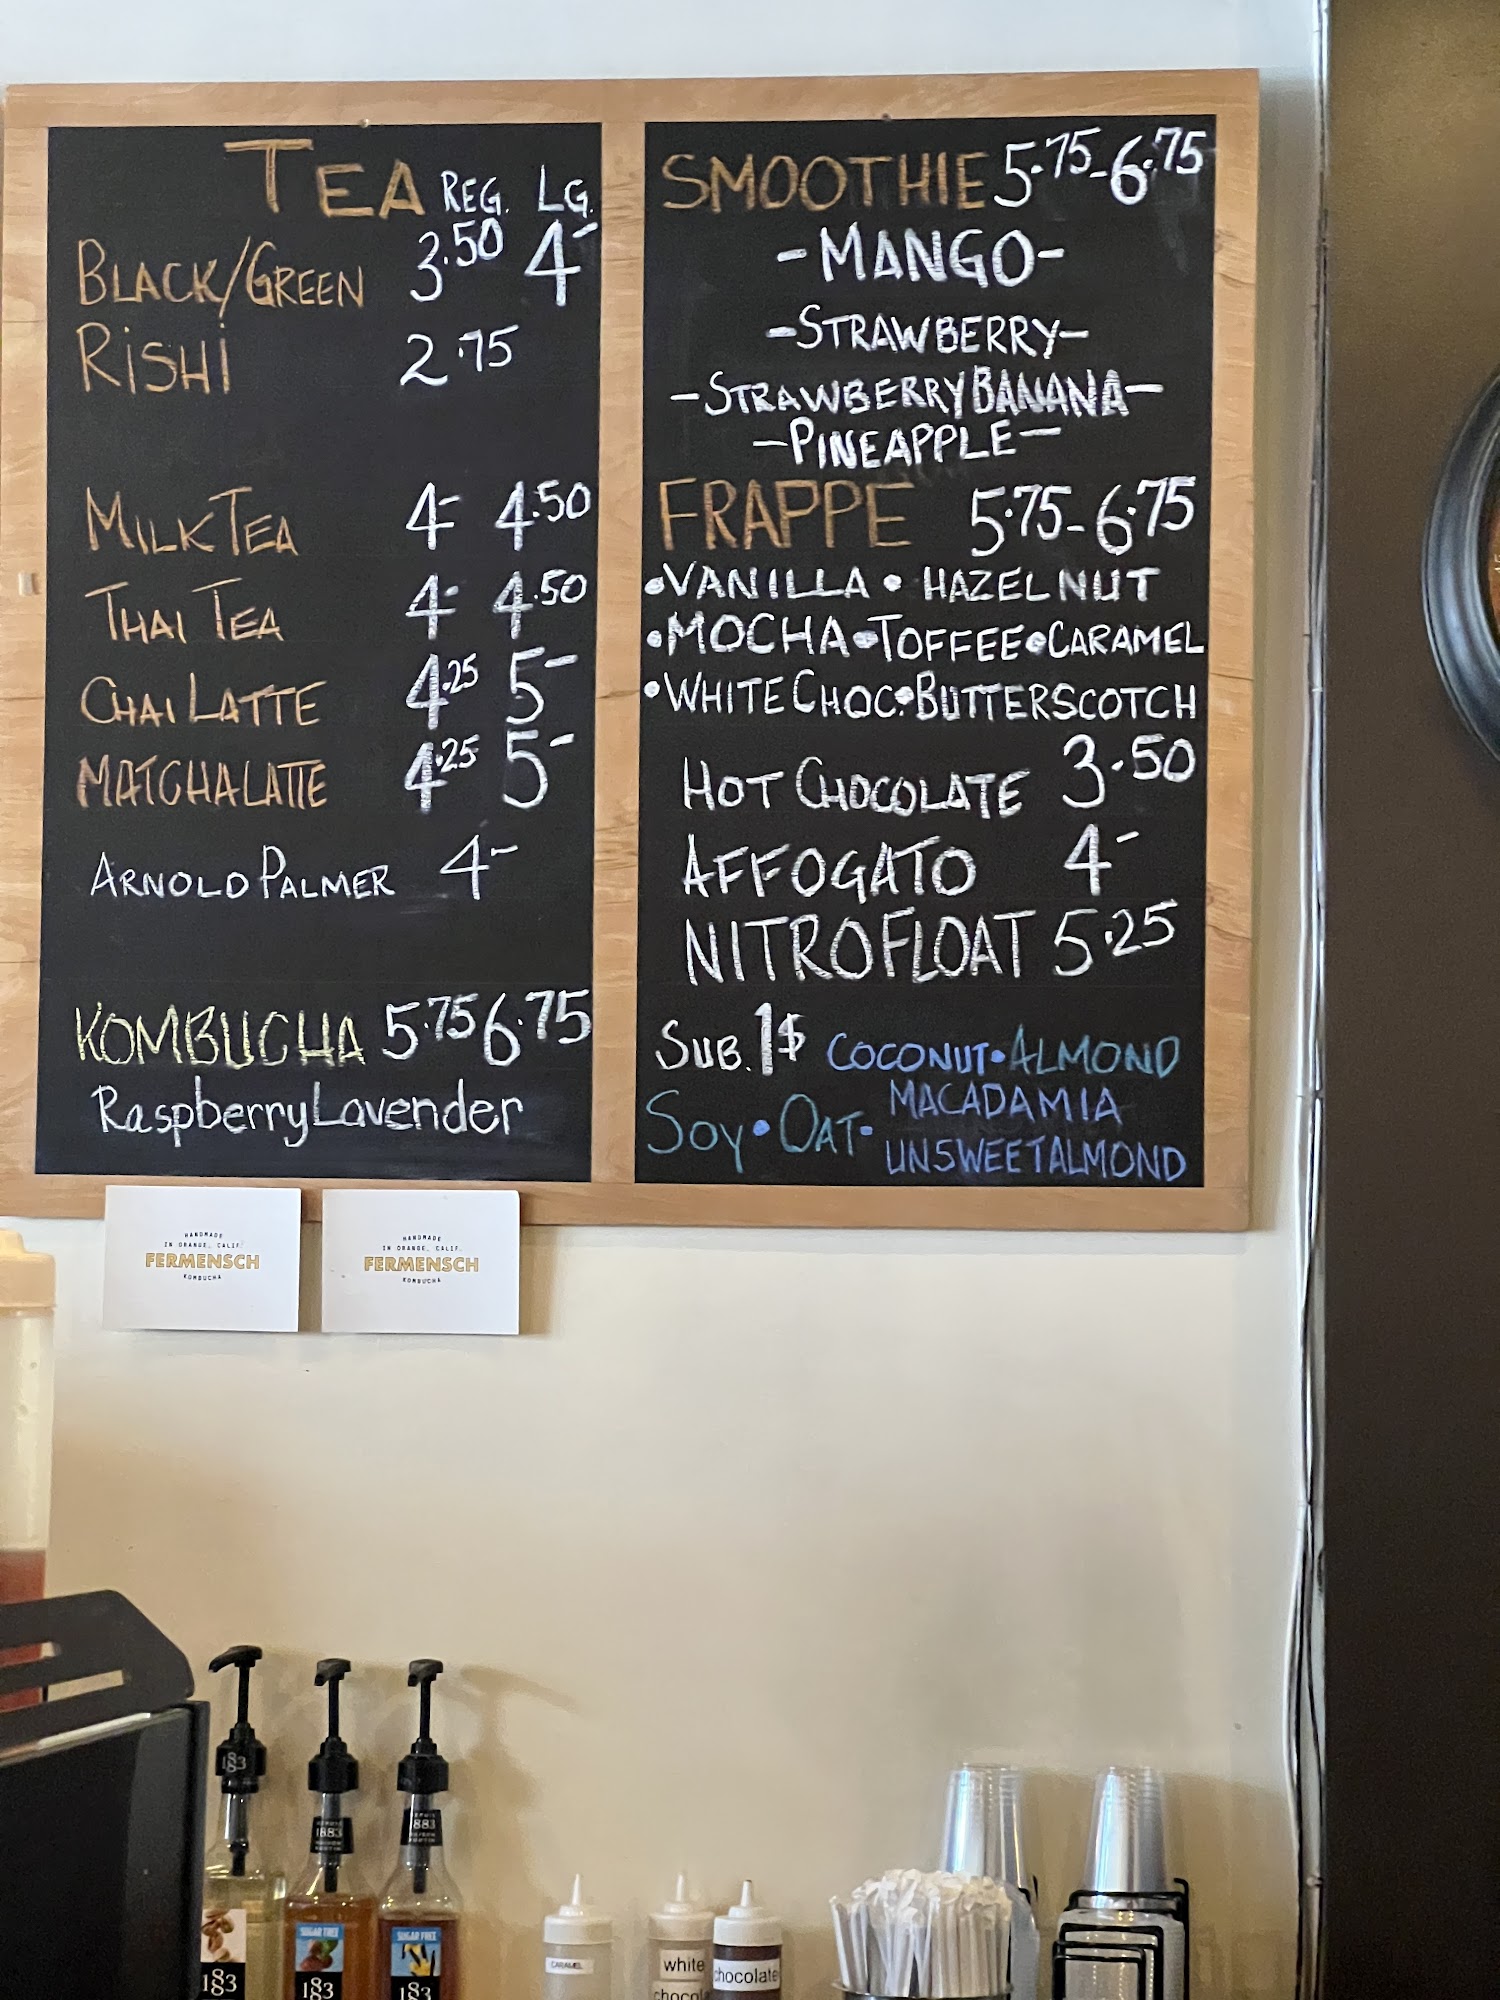 TEA REG. LG.
BLACK/GREEN 3.50 4-
RISHI 2.75
MILK TEA 4- 4.50
THAI TEA 4- 4.50
CHAI LATTE 4.25 5-
MATCHA LATTE 4.25 5-
ARNOLD PALMER 4-
KOMBUCHA 5.75 6.75
Raspberry Lavender
SMOOTHIE 5.75-6.75
-MANGO-
-STRAWBERRY-
-STRAWBERRY BANANA-
-PINEAPPLE-
FRAPPE 5.75-6.75
•VANILLA • HAZELNUT
•MOCHA•TOFFEE•CARAMEL
•WHITE CHOC.•BUTTERSCOTCH
HOT CHOCOLATE 3.50
AFFOGATO 4-
NITRO FLOAT 5.25
SUB. 1$ COCONUT•ALMOND
SOY•OAT•MACADAMIA
UNSWEET ALMOND
HANDMADE
IN ORANGE, CALIF.
FERMENSCH
KOMBUCHA
HANDMADE
IN ORANGE, CALIF.
FERMENSCH
KOMBUCHA
1883
1883
1883
SUGAR FREE
SUGAR FREE
1883
1883
1883
CARAMEL
white
chocolate